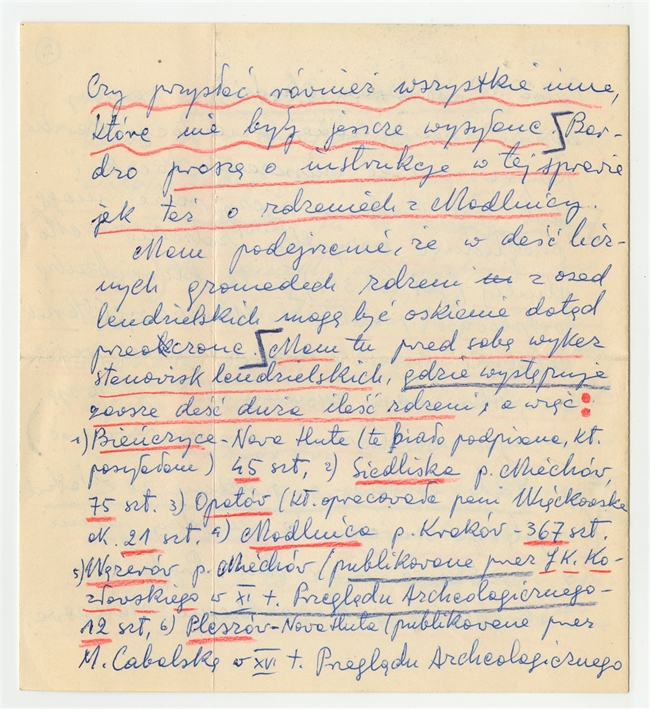 Czy przysłać również wszystkie inne,
które nie były jeszcze wysyłane. Bar-
dzo proszę o instrukcje w tej sprawie
jak też o rdzeniach z Modlnicy.
Mam podejrzenie, że w dość licz-
nych gromadach rdzeni z osad
lendzielskich mogą być oskienie dotąd
przeoczone. Mam tu przed sobą wykaz
stanowisk lendzielskich, gdzie występuje
zawsze dość duża ilość rdzeni, a więc:
1) Bieńczyce - Nowa Huta (te biało podpisane, kt.
posyłałam) 45 szt, 2) Siedliska p. Miechów,
75 szt. 3) Opatów (kt. opracowała pani Więckowska
ok. 21 szt. 4) Modlnica p. Kraków - 367 szt.
5) Wężerów p. Miechów (publikowane przez J.K. Ko-
złowskiego w XI t. Przeglądu Archeologicznego -
12 szt, 6) Pleszów - Nowa Huta (publikowane przez
M. Cabalską w XVI t. Przeglądu Archeologicznego